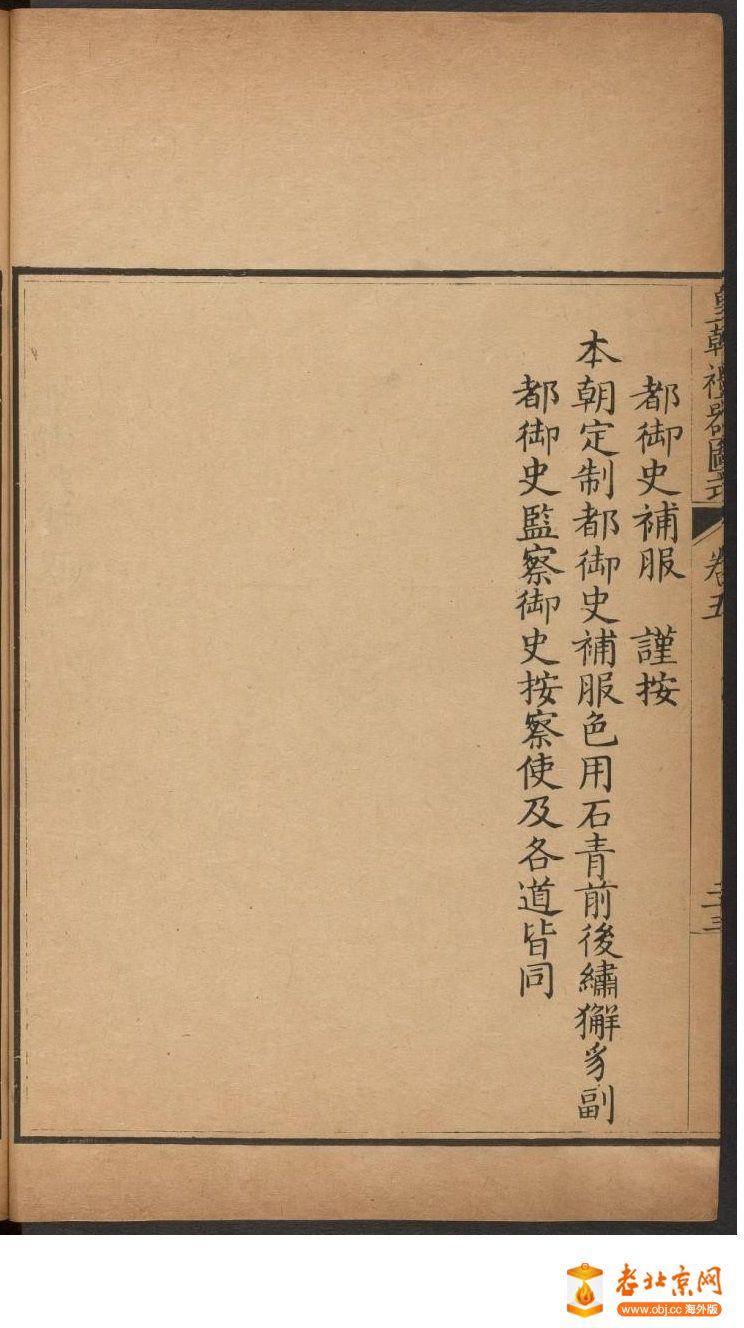 皇朝禮器圖式
卷五
都御史補服　謹按
本朝定制都御史補服色用石青前後繡獬豸副
都御史監察御史按察使及各道皆同
老北京网
www.obj.cc 海外版